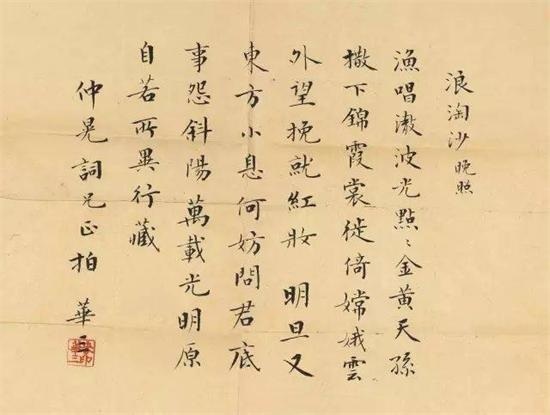 浪淘沙 晚照
漁唱激波光點〻金黃天孫
撒下錦霞裳徙倚嫦娥雲
外望挽就紅妝 明旦又
東方小息何妨問君底
事怨斜陽萬載光明原
自若所異行藏
仲晃詞兄正拍 華